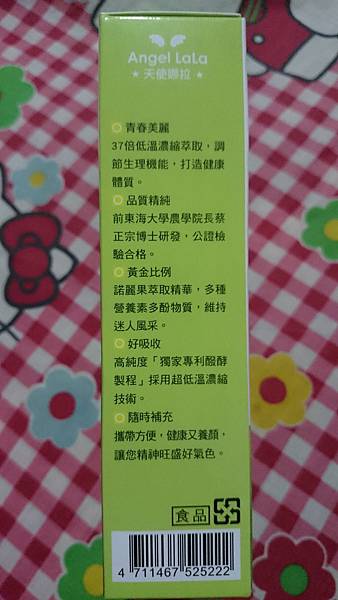 Angel LaLa
★ 天使娜拉 ★
青春美麗
37倍低溫濃縮萃取，調
節生理機能，打造健康
體質。
品質精純
前東海大學農學院長蔡
正宗博士研發，公證檢
驗合格。
黃金比例
諾麗果萃取精華，多種
營養素多酚物質，維持
迷人風采。
好吸收
高純度「獨家專利醱酵
製程」採用超低溫濃縮
技術。
隨時補充
攜帶方便，健康又養顏，
讓您精神旺盛好氣色。
食品
4 711467 525222